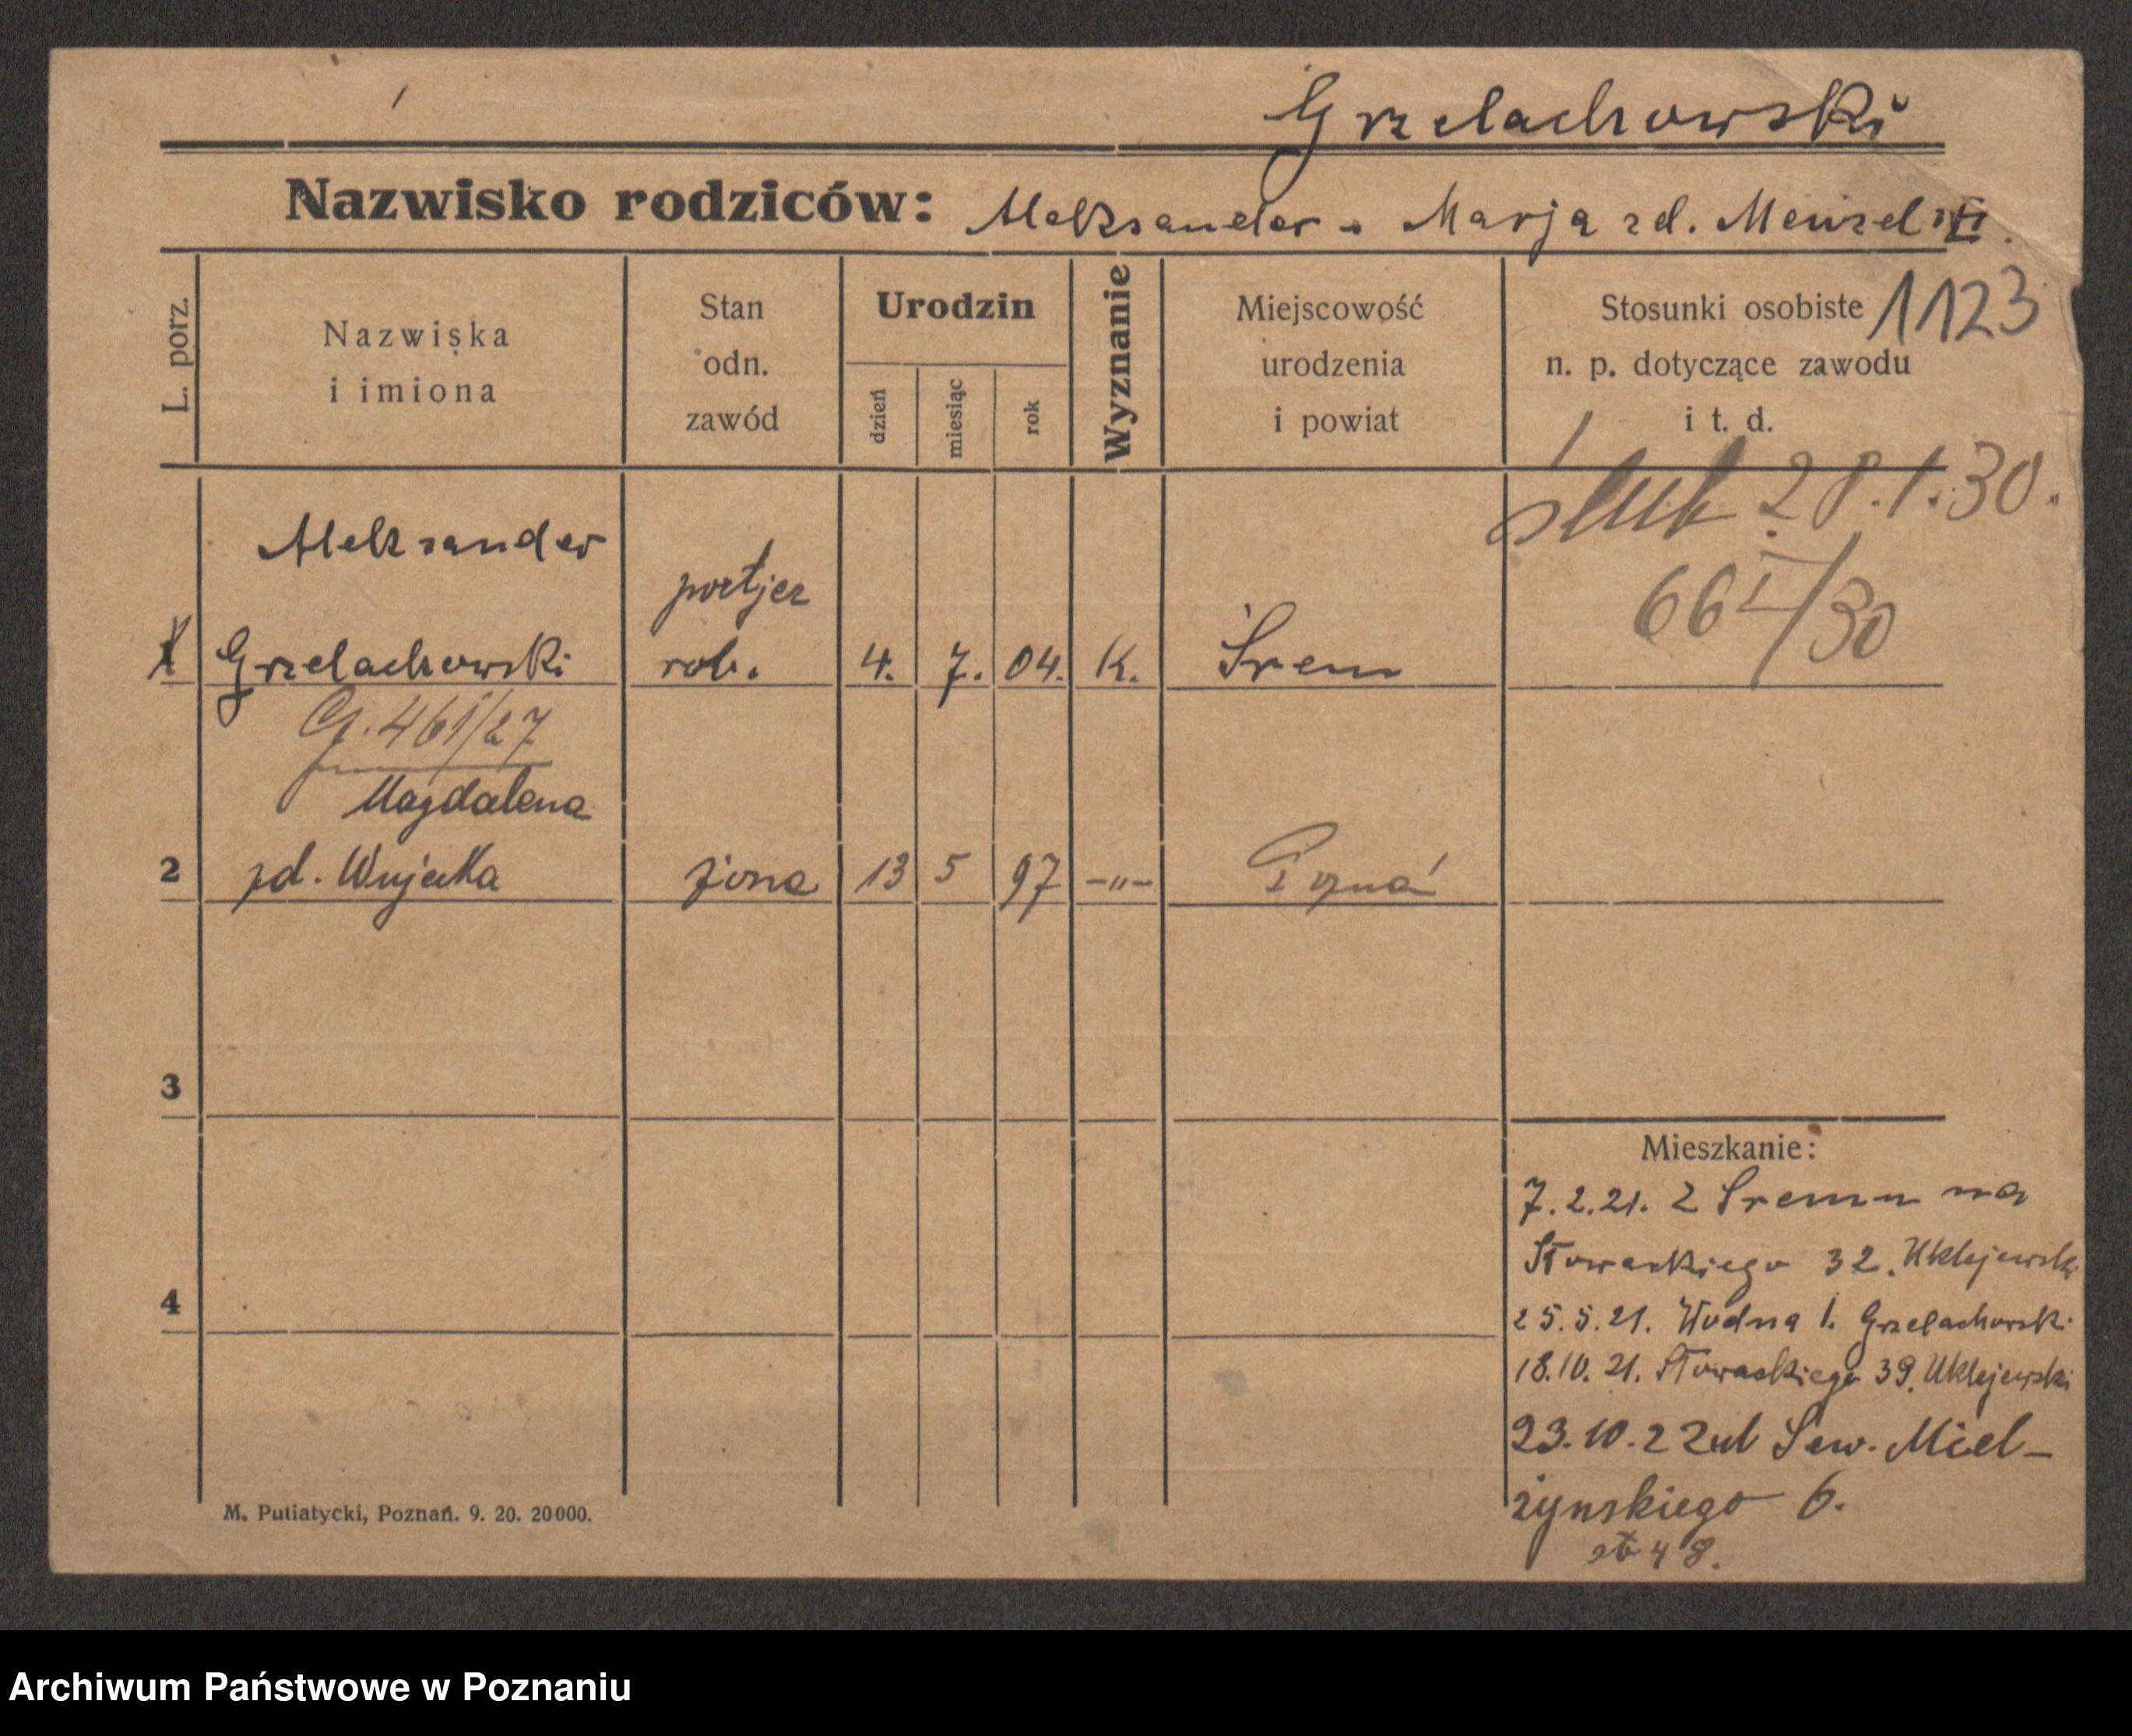 Grzelachowski
Nazwisko rodziców: Aleksander - Marja zd. Menzel
L. porz.
Nazwiska
i imiona
Stan
odn.
zawód
Urodzin
dzień
miesiąc
rok
Wyznanie
Miejscowość
urodzenia
i powiat
Stosunki osobiste
n. p. dotyczące zawodu
i t. d.
1123
ślub 28.1.30.
66I/30
Aleksander
portjer
1 Grzelachowski rob. 4. 7. 04. K. Śrem
G. 461/27
Magdalena
2 zd. żona 13 5 97 -"- Pozná
3
4
Mieszkanie:
7.2.21. z Sremu na
Słowackiego 32. Uklejewski
25.5.21. Wodna 1. Grzelachowski
18.10.21. Słowackiego 39. Uklejewski
23.10.22 ul Sew. Miel-
żynskiego 6.
48.
M. Putiatycki, Poznań. 9. 20. 20000.
Archiwum Państwowe w Poznaniu